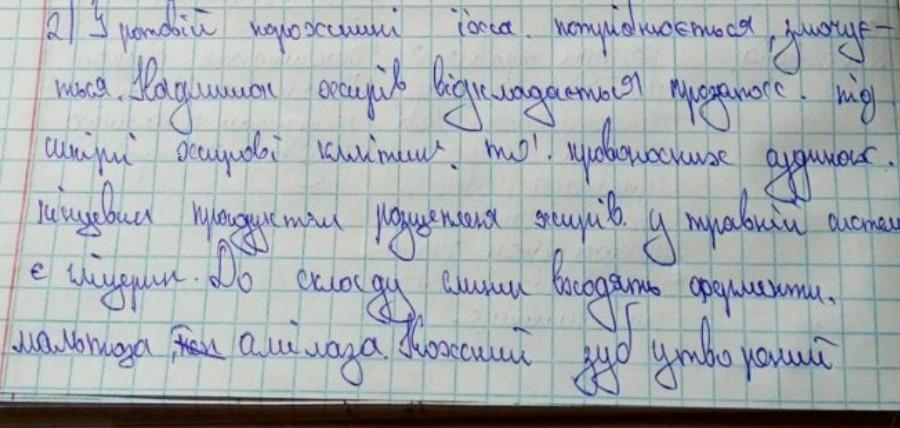 2) У ротовій порожнині їжа. потрібнюється, змочує-
ться. Надлишок жирів відкладається прозапас. під
шкірі жирові клітини. то! кровоносних судинах.
Кінцевим продуктом розщепленя жирів. у травній систем
є гліцерин. До складу слини входять ферменти.
мальтоза, амілаза. Кожний зуб утворений